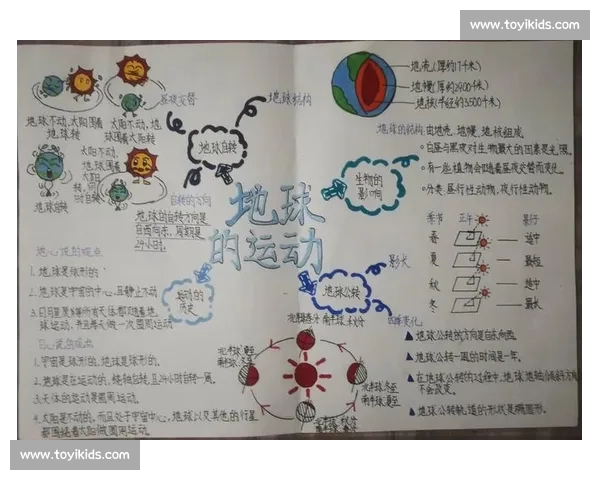 www.toyikids.com
地球不动,太阳围着地球转
太阳不动,地球围着太阳转
太阳不动,地球围着太阳转,同时自转
地球自转
昼夜交替
地球结构
地球自转
自转的方向
地球的自转方向是
自西向东,周期是
24小时.
地壳(厚约17千米)
地幔(厚约2900千米)
地核(半径约3500千米)
地球的结构 由地壳、地幔、地核组成
白昼与黑夜对生物最大的因素是光照.
有一些植物会随着昼夜交替而变化.
分类 昼行性动物、夜行性动物.
生物的
影响
地球
的运动
运动的
历史
地球公转
影长
四季变化
季节 正午 影子
春 适中
夏 最短
秋 适中
冬 最长
地心说的观点
1.地球是球形的
2.地球是宇宙的中心,且静止不动
地球运动,并且每天做一次圆周运动
日心说的观点
1.宇宙是球形的,地球是球形的.
2.地球是在运动的,绕轴自转,且24小时自转一周.
3.天体的运动是圆周运动.
4.太阳是不动的,而且处于宇宙中心,地球以及其他的行星
都围绕着太阳做圆周运动.
北半球春分 南半球秋分
北半球夏至
南半球冬至
北半球冬至
南半球夏至
北半球秋分
南半球春分
地球公转的方向是自东向西.
地球公转一周的时间是一年.
在地球公转的过程中,地球地轴倾斜方向
不会改变.
地球公转轨道的形状是椭圆形.
www.toyikids.com